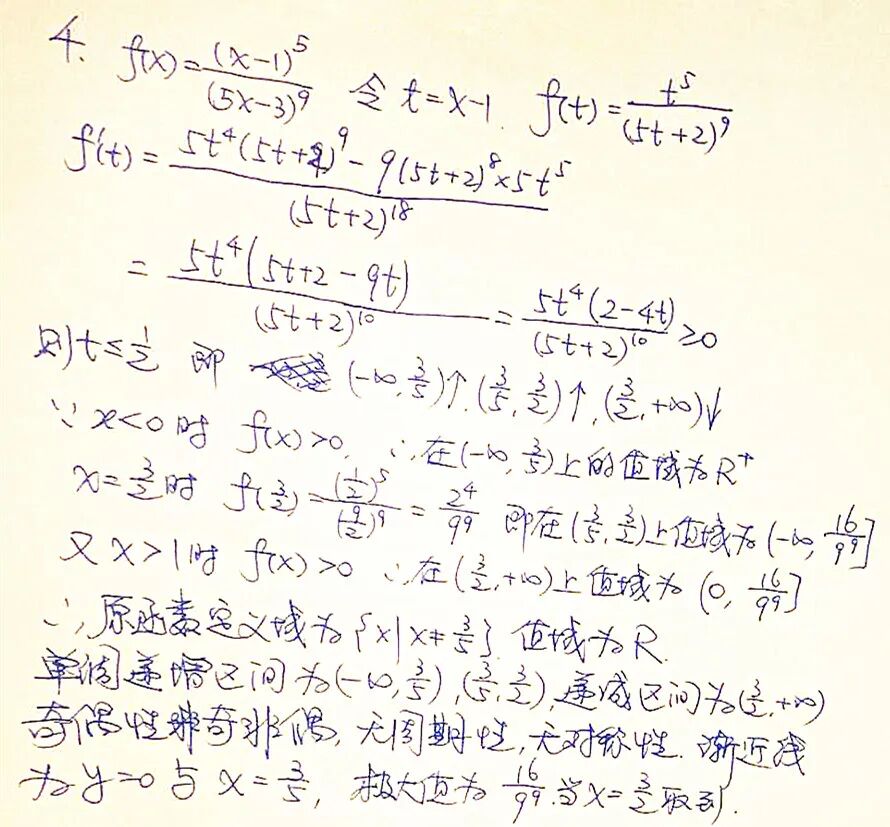 4. f(x)=\frac{(x-1)^5}{(5x-3)^9} 令 t=x-1. f(t)=\frac{t^5}{(5t+2)^9}
f'(t)=\frac{5t^4(5t+2)^9-9(5t+2)^8×5t^5}{(5t+2)^{18}}
=\frac{5t^4(5t+2-9t)}{(5t+2)^{10}}=\frac{5t^4(2-4t)}{(5t+2)^{10}}≥0
则t≤\frac{1}{2} 即 (-∞,\frac{3}{5})↑,(\frac{3}{5},\frac{3}{2})↑,(\frac{3}{2},+∞)↓
∵x<0时 f(x)>0, ∴在(-∞,\frac{3}{5})上的值域为R^+
x=\frac{3}{2}时 f(\frac{3}{2})=\frac{(\frac{1}{2})^5}{(\frac{9}{2})^9}=\frac{2^4}{9^9} 即在(\frac{3}{5},\frac{3}{2})上值域为(-∞,\frac{16}{9^9}]
又x>1时 f(x)>0 ∴在(\frac{3}{2},+∞)上值域为(0,\frac{16}{9^9}]
∴原函数定义域为{x|x≠\frac{3}{5}} 值域为R.
单调递增区间为(-∞,\frac{3}{5}),(\frac{3}{5},\frac{3}{2}),递减区间为(\frac{3}{2},+∞)
奇偶性非奇非偶,无周期性,无对称性.渐近线
为y=0与x=\frac{3}{5},极大值为\frac{16}{9^9}.当x=\frac{3}{2}取到.